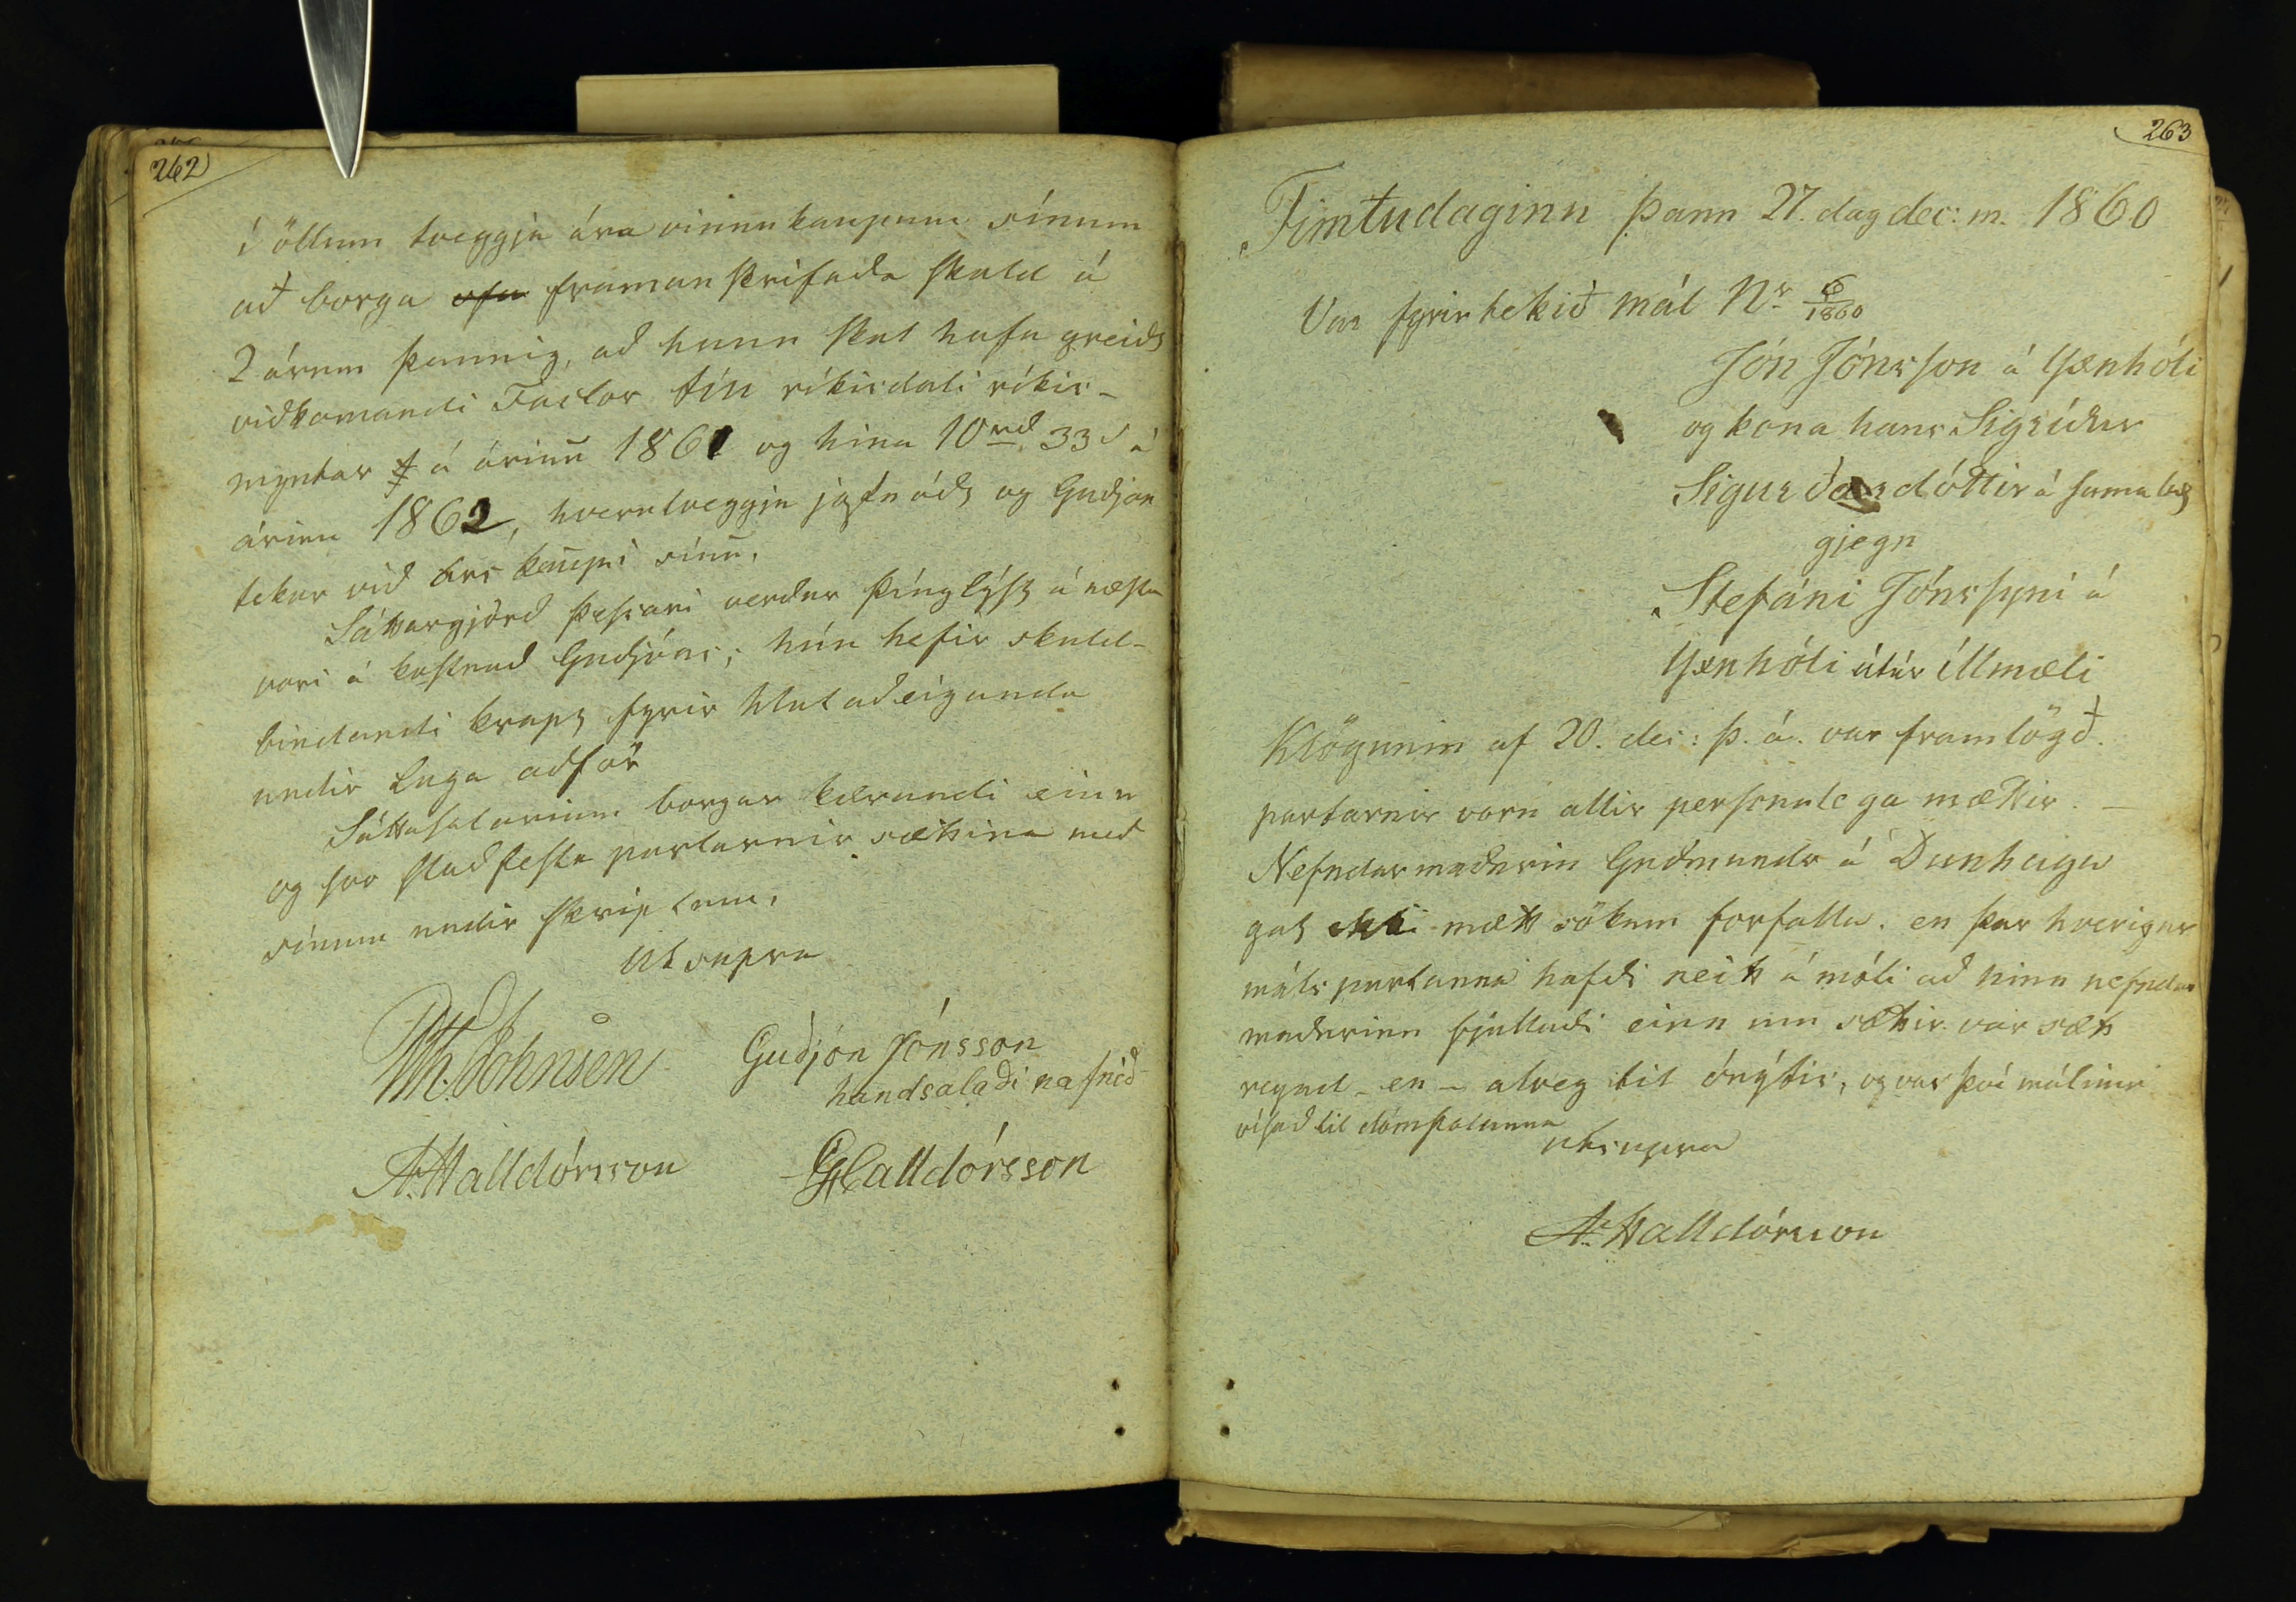 262
í öllum tveggja ára vinnukaupum sínum
að borga ofa framanskrifaða skuld á
2 árum þannig, að hann skal hafa greidt
viðkomandi Factor tíu ríkisdali ríkis-
myntar á árinu 1861 og hina 10 rd 33 s á
árinu 1862, hverutveggju jafnóðt og Guðjón
tekur við árs kaupi sínu.
Sáttargjörð þessari verður þínglýst á næsta
vori á kostnað Guðjóns; hún hefir skuld-
bindandi krapt fyrir hlutaðeigendur
undir laga aðför
Sáttasalarium borgar kærandi einn
og svo staðfesta partarnir sættina með
sínum undir skriptum.
Ut supra
Th. Johnsen
Guðjón Jónsson
handsalaði nafnið
A. Halldórsson
G Halldórsson
263
Fimtudaginn þann 27. dag dec: m. 1860
Var fyrirtekið mál Nr 6/1860
Jón Jónsson á Yxnhóli
og kona hans Sigríður
Sigurðardóttir á sama bæ
gjegn
Stefáni Jónssyni á
Yxnhóli útúr íllmæli
Klögunin af 20. dec: þ. á. var framlögð.
partarnir voru allir personulega mættir. –
Nefndarmaðurin Guðmundr á Dunhaga
gat ekki mætt sökum forfalla. en þar hverigur
málspartanna hafði neitt á móti að hinn nefndar
maðurinn fjallaði einn um sættir var sætt
reynd – en – alveg til ónýtis, og var því málinu
vísað til dómstolanna
ut supra
A. Halldórsson